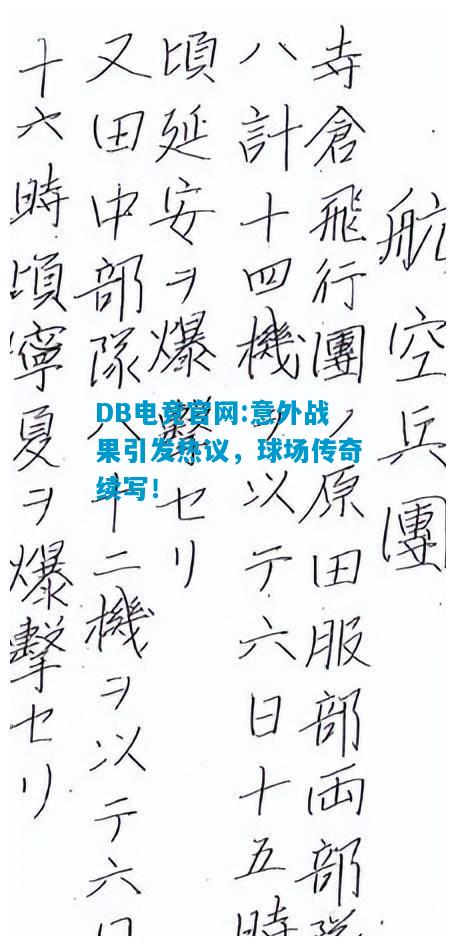 航空兵團
寺倉飛行團ノ原田服部両部隊
八計十四機ヲ以テ六日十五時
頃延安ヲ爆撃セリ
又田中部隊八十二機ヲ以テ六日
十六時頃寧夏ヲ爆撃セリ
DB电竞官网:意外战
果引发热议，球场传奇
续写！